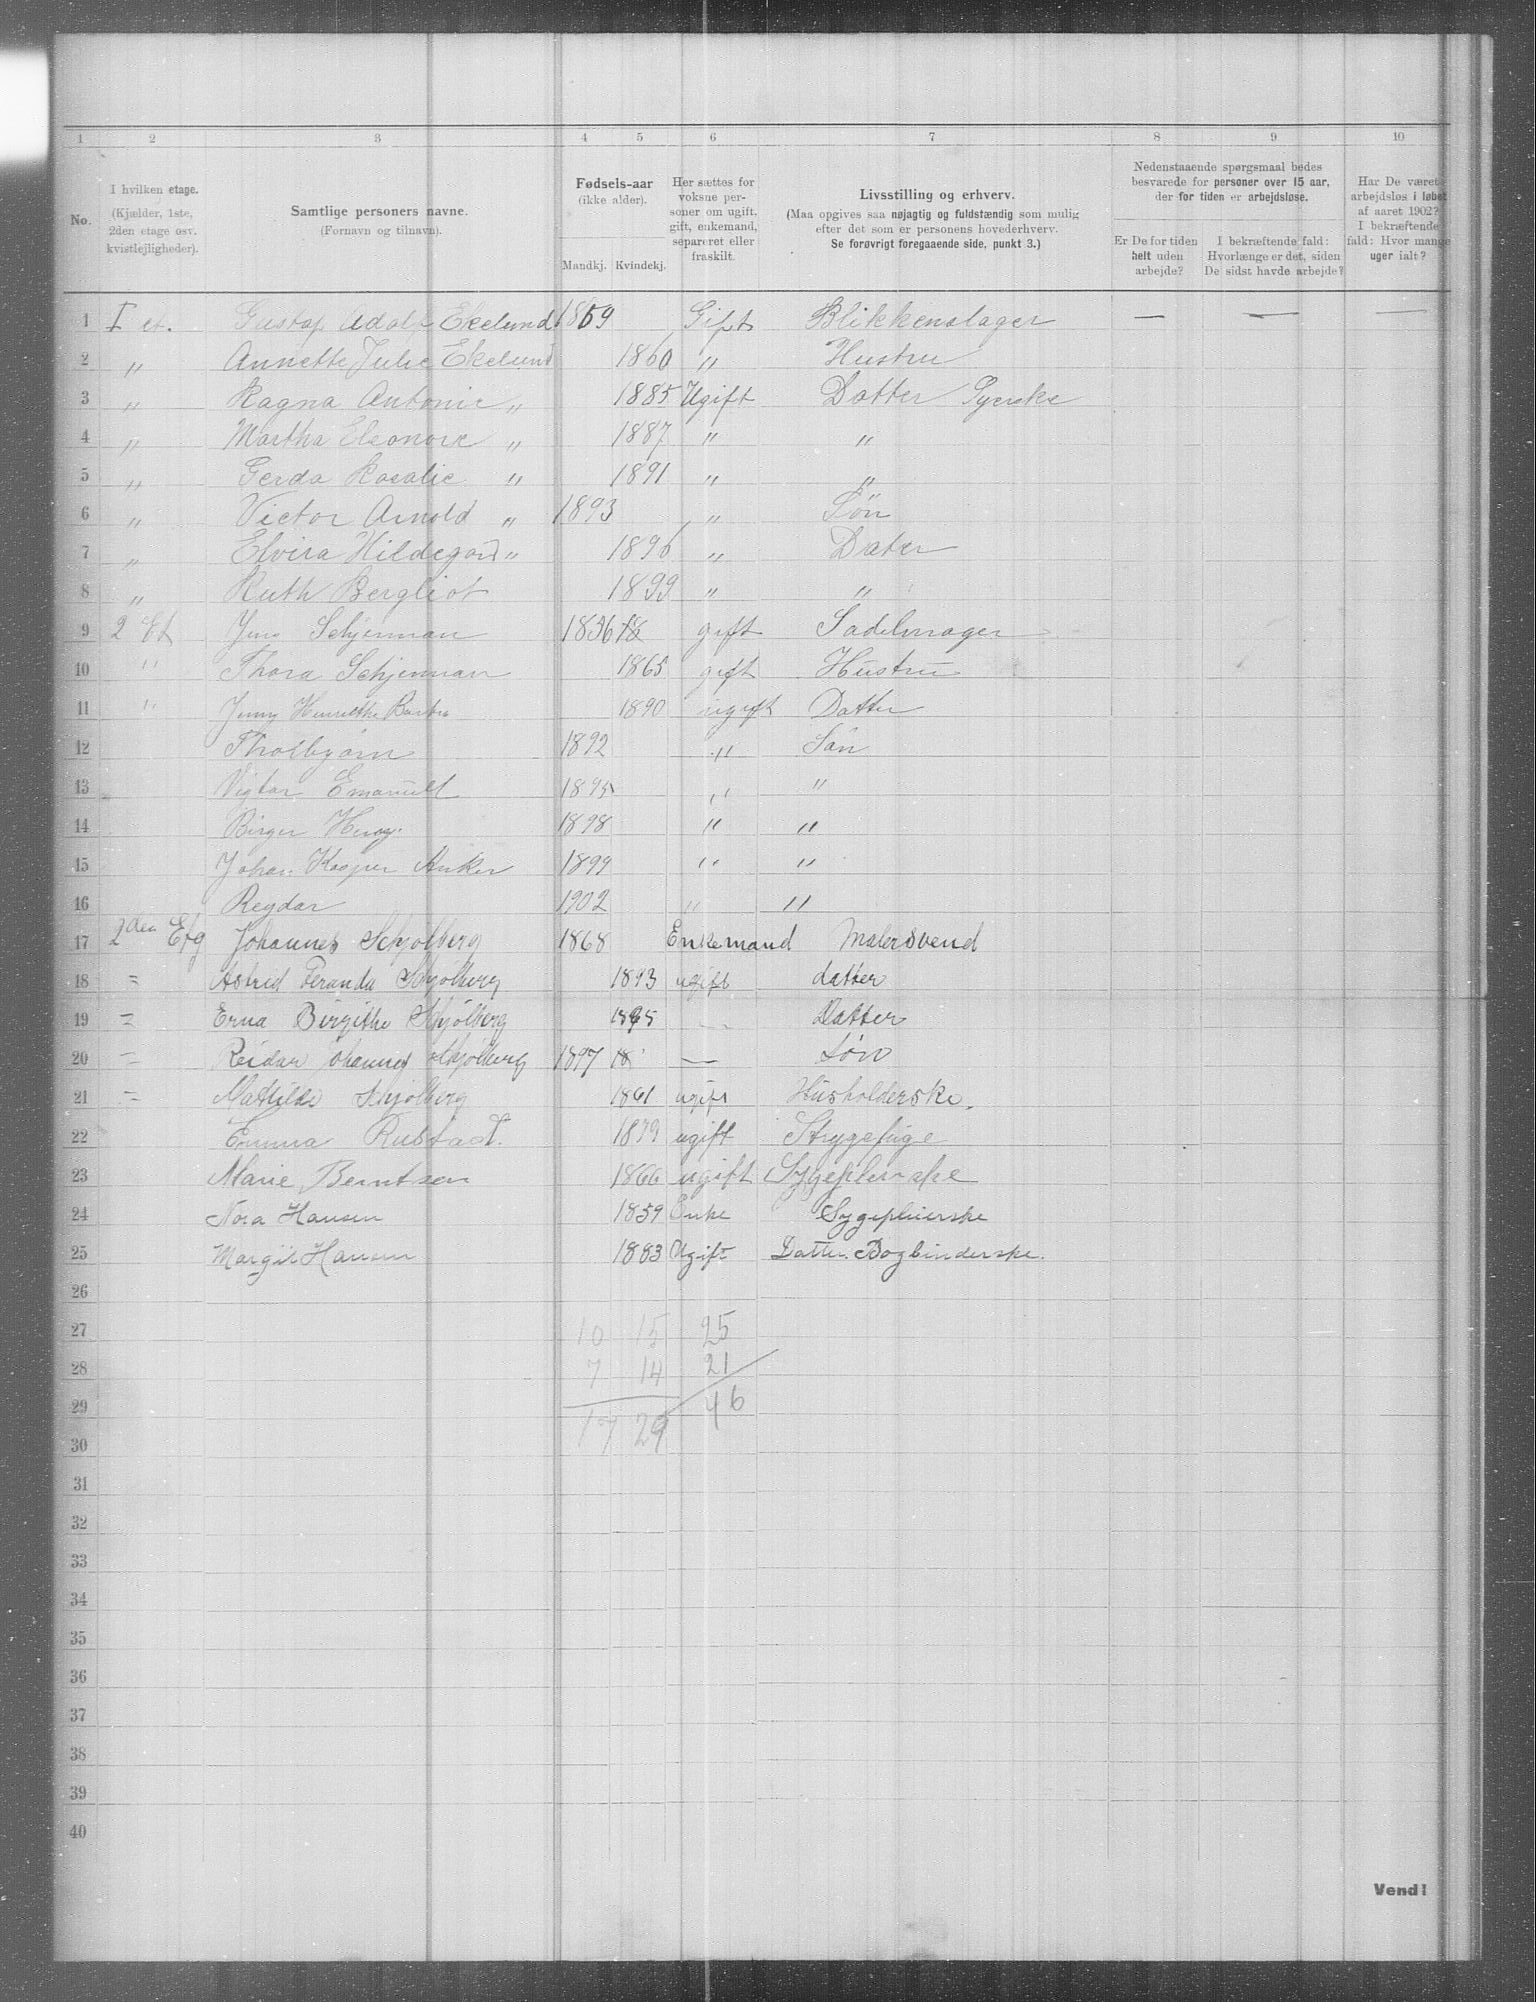 1 2 3 4 5 6 7 8 9 10
No.
I hvilken etage. (Kjælder, 1ste, 2den etage osv. kvistlejligheder).
Samtlige personers navne. (Fornavn og tilnavn).
Fødsels-aar (ikke alder). Mandkj. Kvindekj.
Her sættes for voksne personer om ugift, gift, enkemand, separeret eller fraskilt.
Livsstilling og erhverv. (Maa opgives saa nøjagtig og fuldstændig som mulig efter det som er personens hovederhverv. Se forøvrigt foregaaende side, punkt 3.)
Nedenstaaende spørgsmaal bedes besvarede for personer over 15 aar, der for tiden er arbejdsløse.
Er De for tiden helt uden arbejde?
I bekræftende fald: Hvorlænge er det, siden De sidst havde arbejde?
Har De været arbejdsløs i løbet af aaret 1902? I bekræftende fald: Hvor mange uger ialt?
1 I et. Gustaf Adolf Ekelund 1859 Gift Blikkenslager — — —
2 „ Annette Julie Ekelund 1860 „ Hustru
3 „ Ragna Antonie „ 1885 Ugift Datter Syerske
4 „ Martha Eleonore „ 1887 „ „
5 „ Gerda Rosalie „ 1891 „ „
6 „ Victor Arnold „ 1893 „ Søn
7 „ Elvira Hildegard „ 1896 „ Datter
8 „ Ruth Bergliot 1899 „ „
9 2 Et Jens Schjenman 1836 18 gift Sadelmager
10 " Thora Schjenman 1865 gift Hustru
11 " Jenny Henriette Barbra 1890 ugift Datter
12 Thorbjørn 1892 " Søn
13 Vigtor Emanuel 1895 " "
14 Birger 1898 " "
15 Johan Kasper Anker 1899 " "
16 Reydar 1902 " "
17 2den Etg Johannes Schjølberg 1868 Enkemand Malersvend
18 = Astrid Feranda Schjølberg 1893 ugift datter
19 = Erna Birgithe Schjølberg 1895 — Datter
20 = Reidar Johannes Schjølberg 1897 18 — Søn
21 = Mathilde Schjølberg 1861 ugift Husholderske.
22 Emma Rustad. 1879 ugift Strygepige
23 Marie Berntsen 1866 ugift Sygepleierske
24 Nora Hansen 1859 Enke Sygepleierske
25 Margit Hansen 1883 Ugift Datter. Bogbinderske.
26
27 10 15 25
28 7 14 21
29 17 29 46
30
31
32
33
34
35
36
37
38
39
40
Vend!